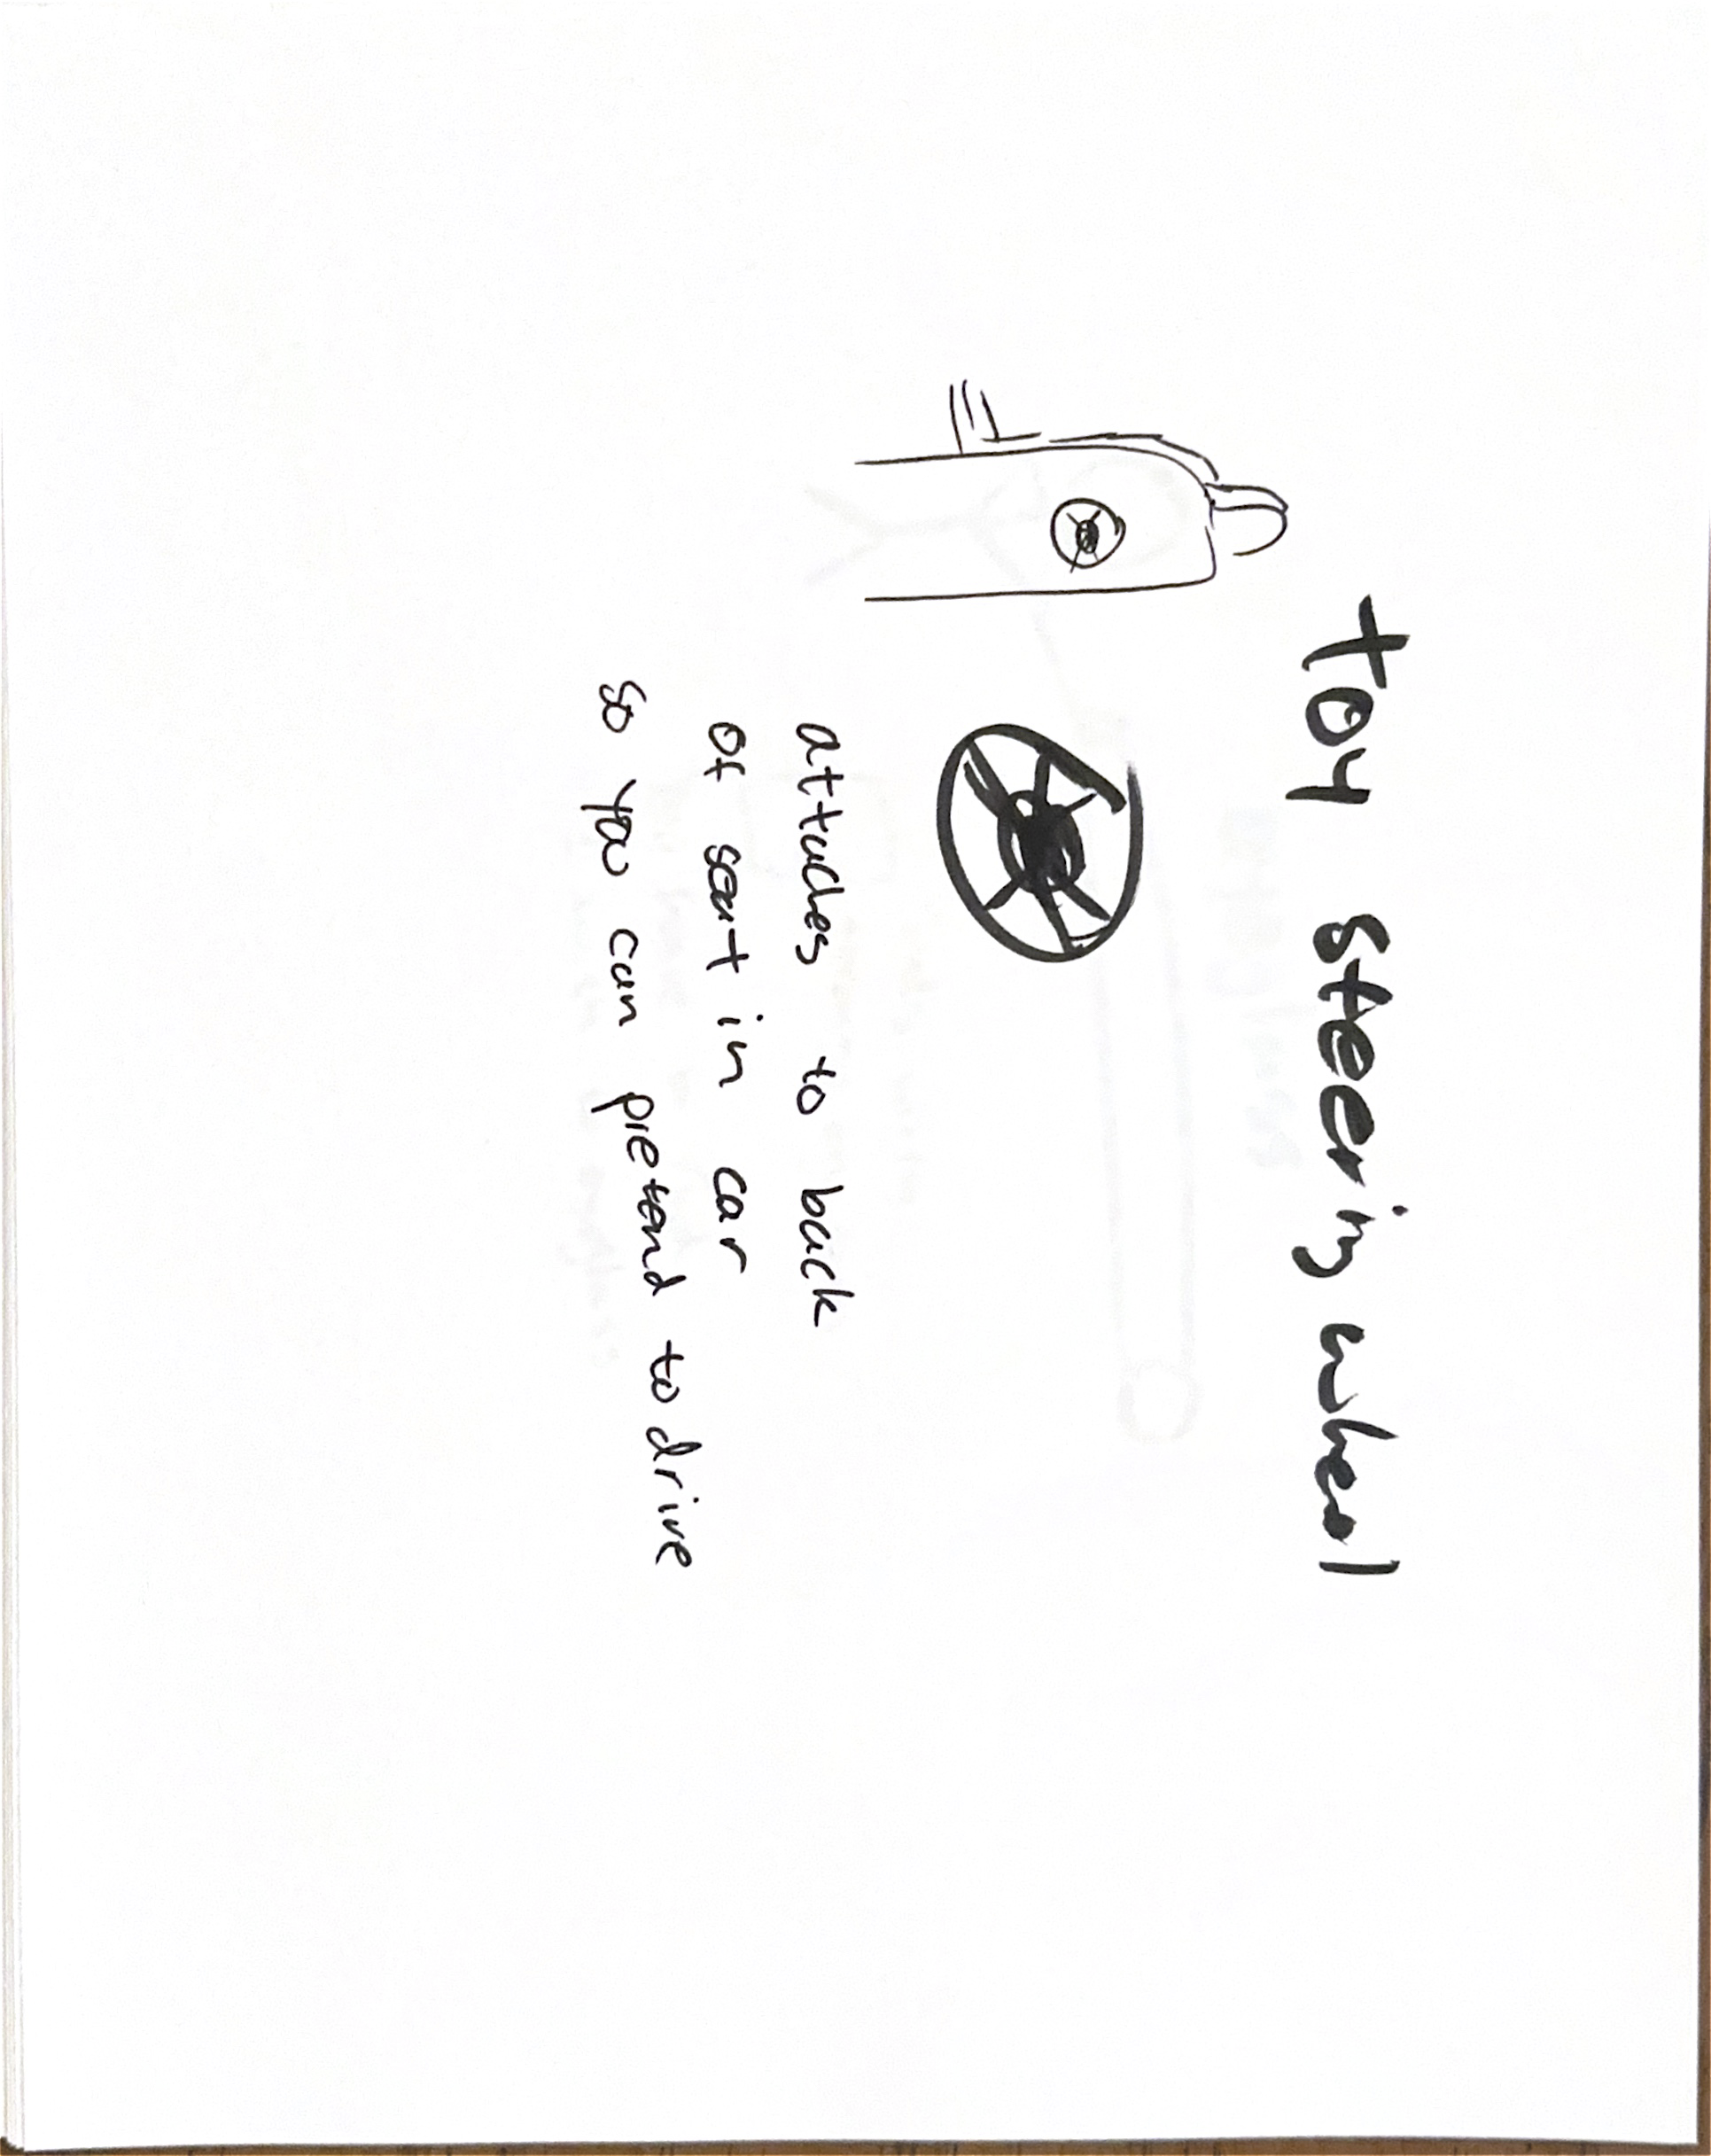 toy steering wheel
attaches to back
of seat in car
so you can pretend to drive